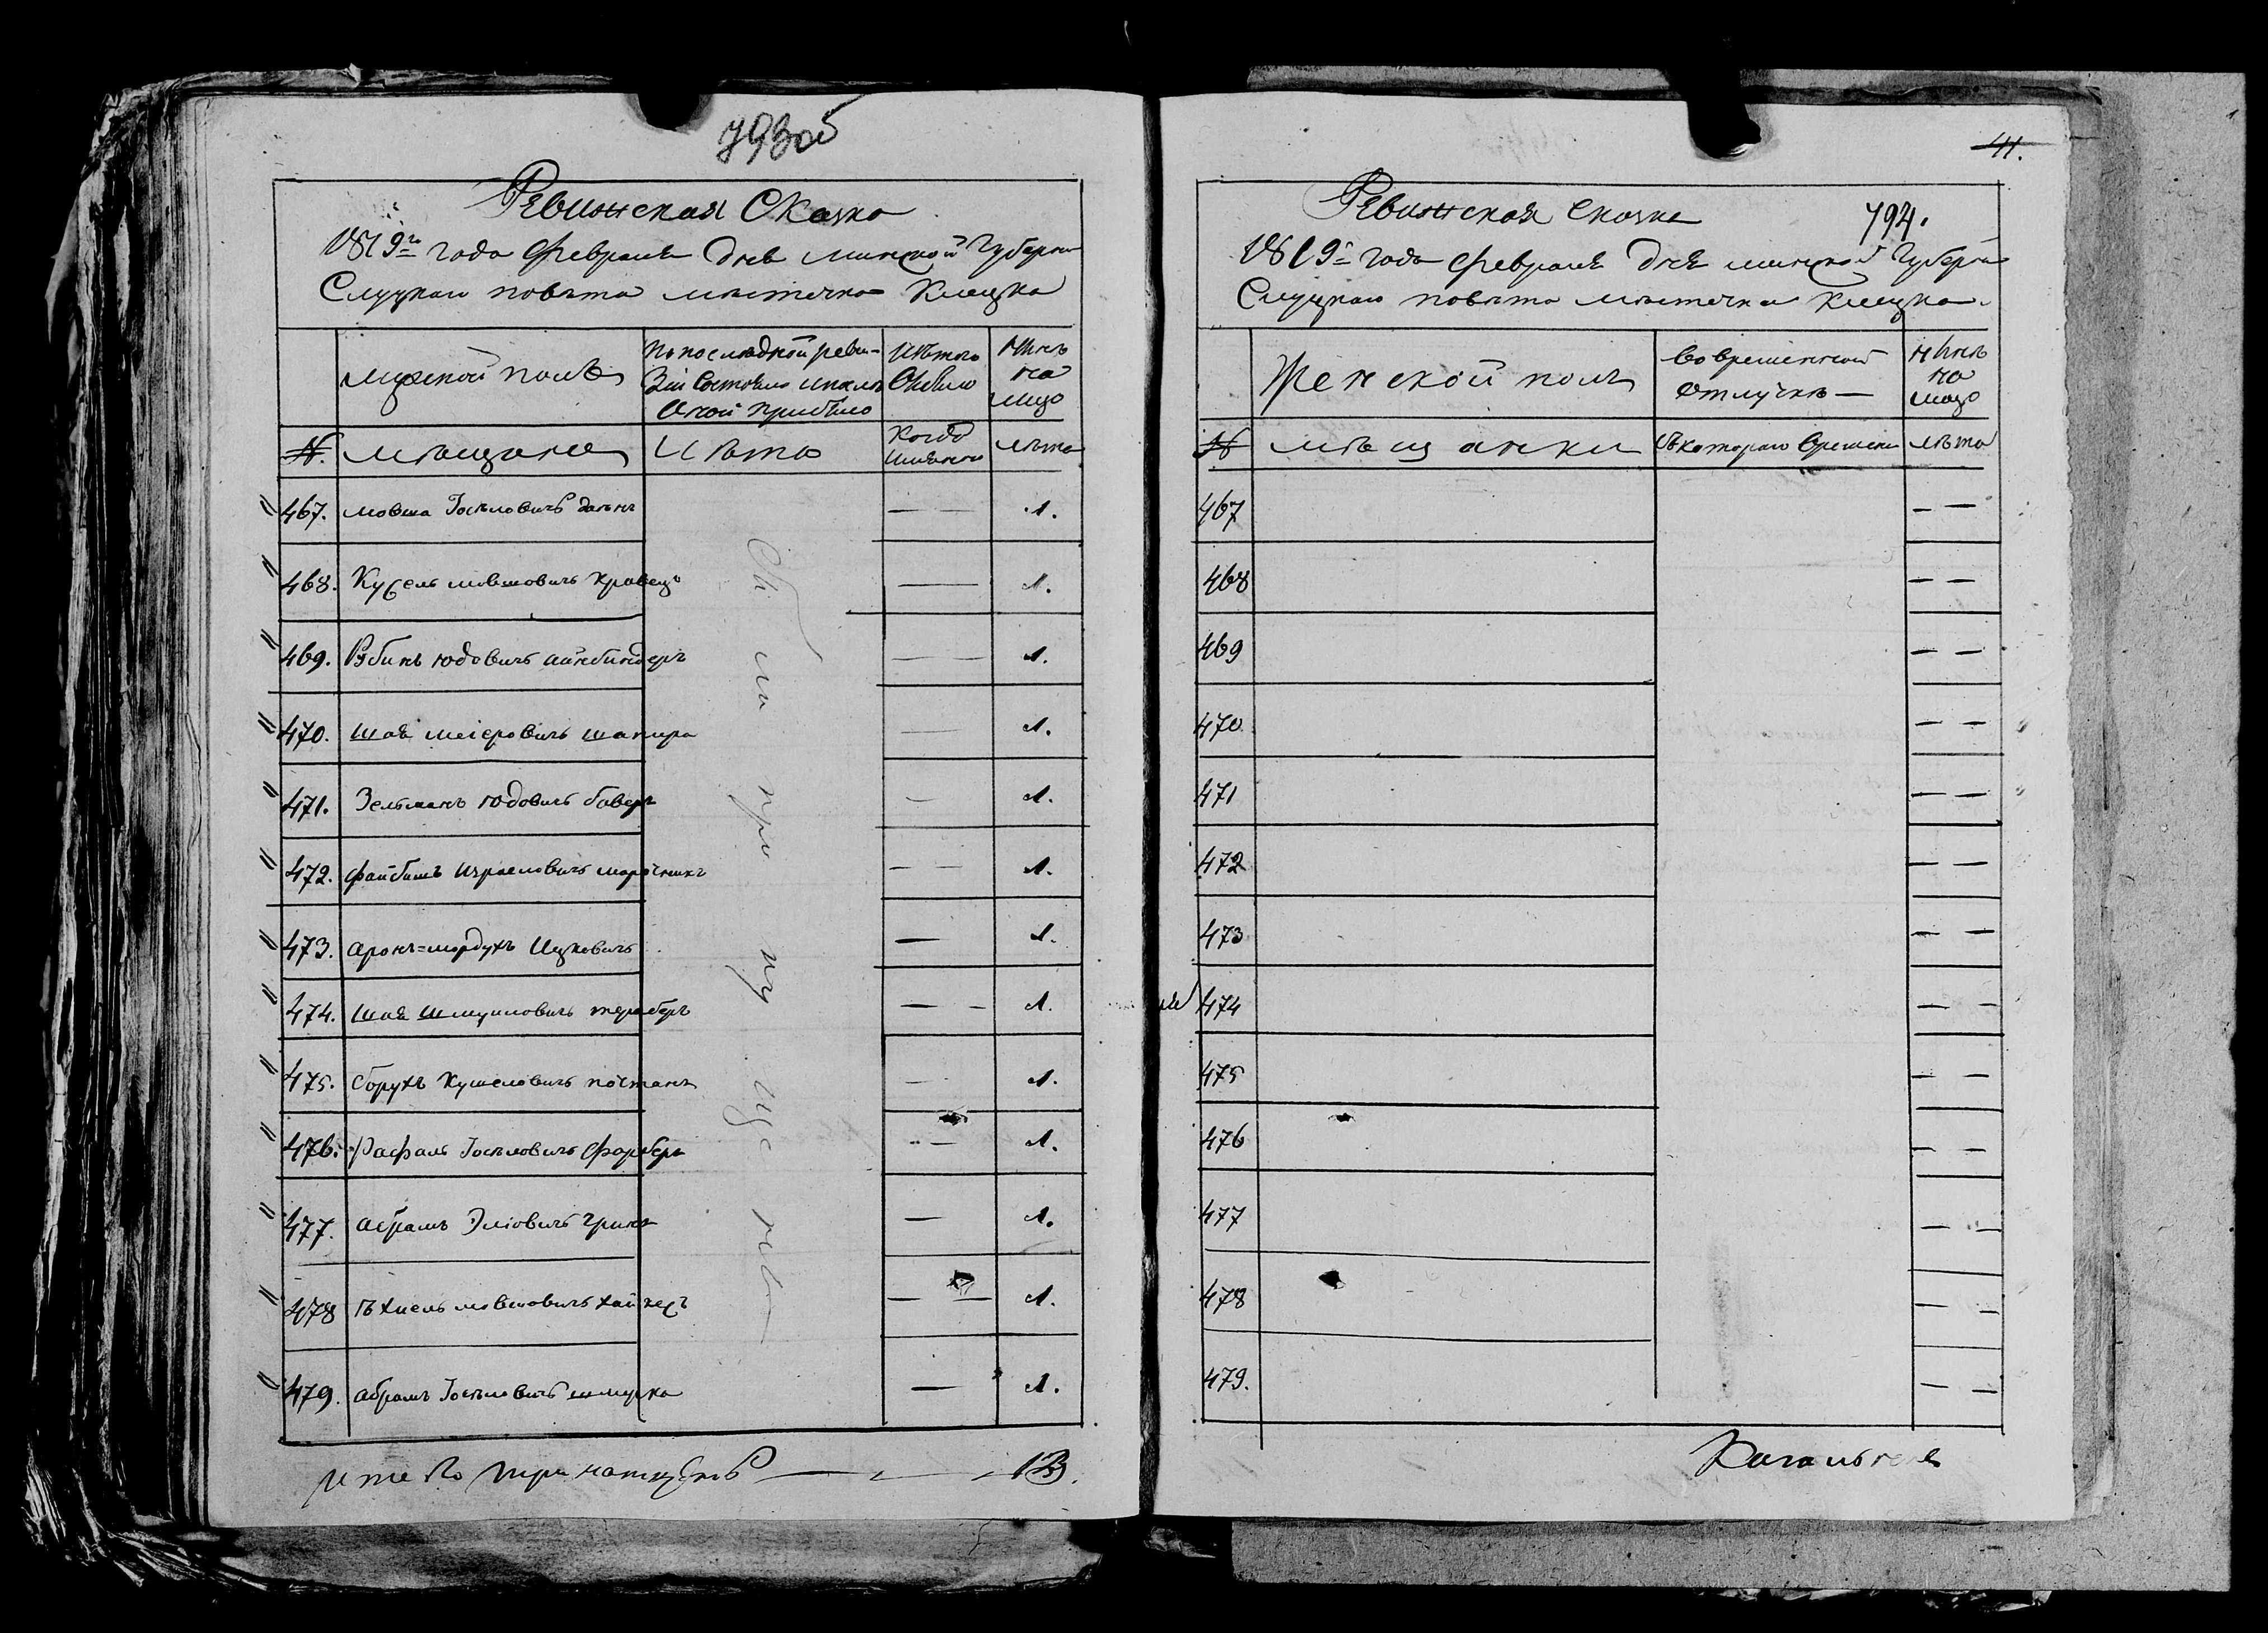 793об
Ревижская Сказка
1819го года Февраля дня минской Губерни
Слуцкаго повѣта мѣстечка Клецка
мужской полъ
по последной реви-
зіи состояло и после
оной прибыло
Изтого
Выбыло
Нынѣ
на
лицо
№. мѣщане
И лѣта
Когда
имянно
лѣта
467. мовша Іосѣловичъ — 1.
468. Кусель мовшовичъ кравецъ — 1.
469. Рубинъ юдовичъ айнбиндеръ — 1.
470. шая меіеровичъ шапира — 1.
471. Зельманъ юдовичъ — 1.
472. файбишъ израеловичъ — 1.
473. аронъ=мордухъ Ицковичъ — 1.
474. шая шмуиловичъ — 1.
475. борухъ кушеловичъ — 1.
476. Рафалъ Іосѣловичъ Фарберъ — 1.
477. абрамъ Эліовичъ Гринъ — 1.
478 мовшовичъ — 1.
479. абрамъ Іосѣловичъ шмурка — 1.
итого тринатцеть — 13.
41.
Ревижская сказка
794.
1819го года февраля дня минской Губерни
Слуцкаго повѣта мѣстечка Клецка.
Женской полъ
Во временной
отлучкѣ —
нынѣ
на
лицо
№ мѣщанки
Съ котораго времени
лѣта
467 — —
468 — —
469 — —
470 — —
471 — —
472 — —
473 — —
474 — —
475 — —
476 — —
477 — —
478 — —
479. — —